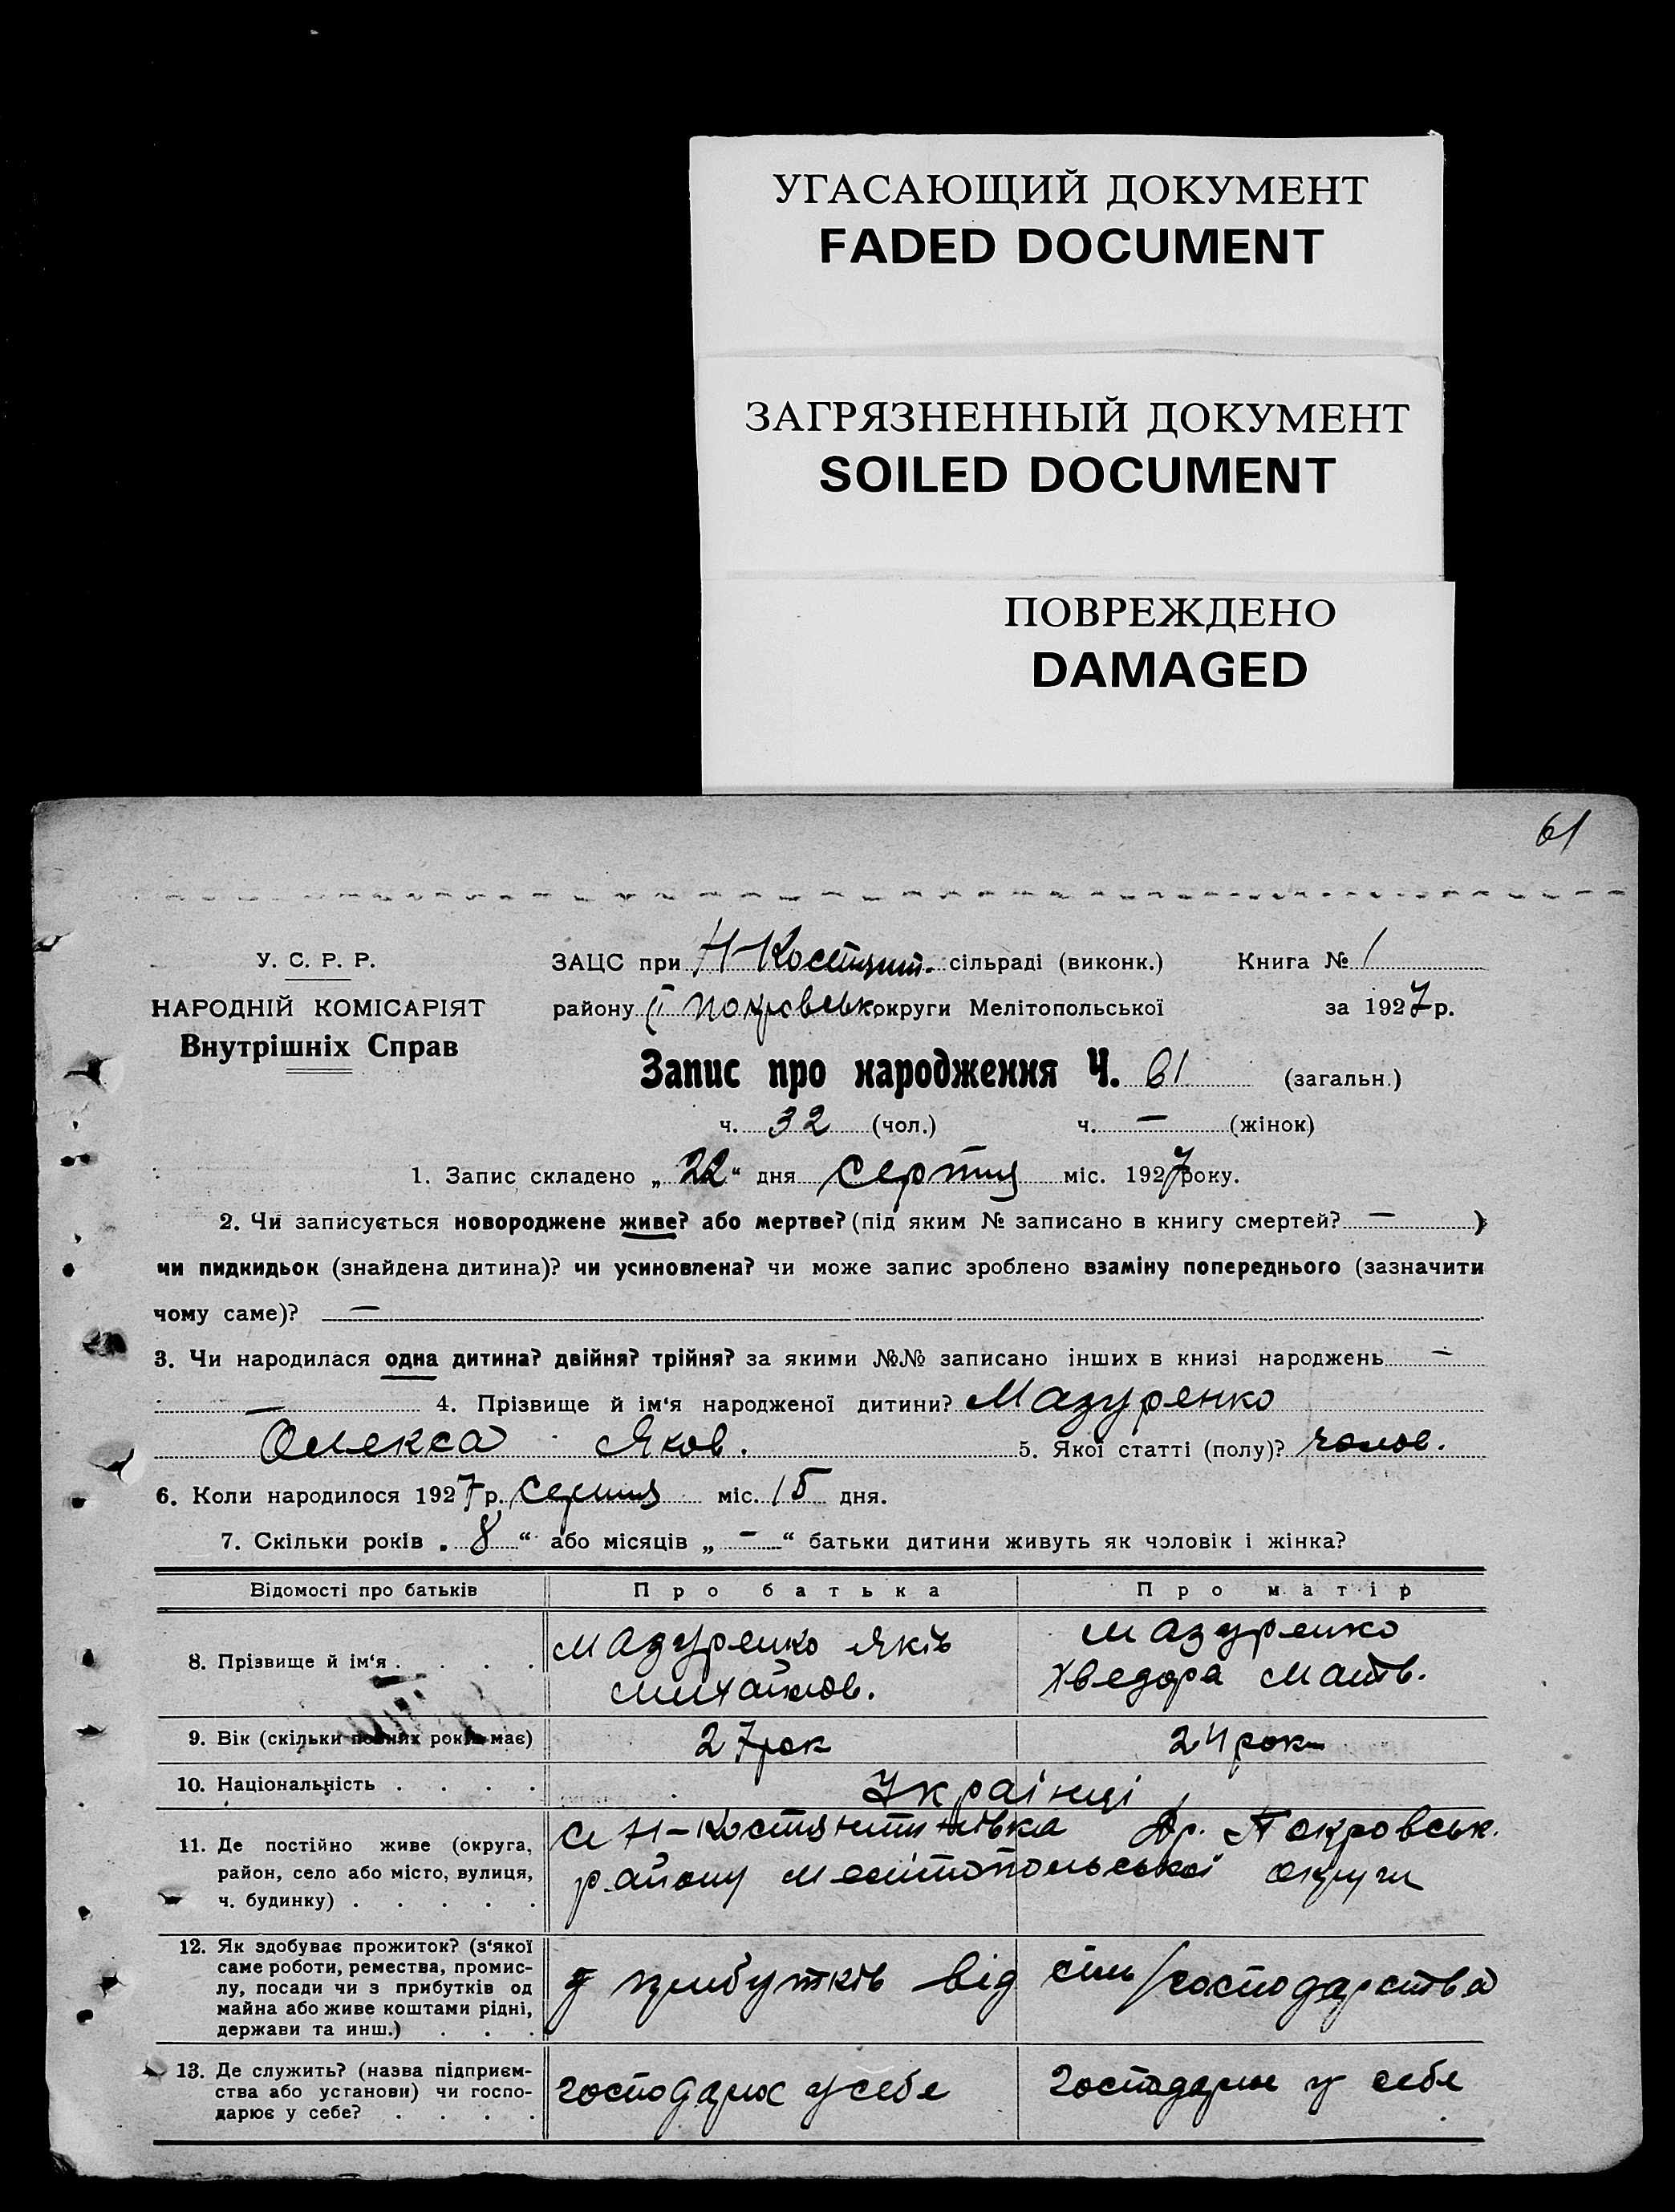 УГАСАЮЩИЙ ДОКУМЕНТ
FADED DOCUMENT
ЗАГРЯЗНЕННЫЙ ДОКУМЕНТ
SOILED DOCUMENT
ПОВРЕЖДЕНО
DAMAGED
61
У. С. Р. Р.
НАРОДНІЙ КОМІСАРІЯТ
Внутрішніх Справ
ЗАЦС при Н-Костянт. сільраді (виконк.) Книга № 1
району Покровськ округи Мелітопольської за 1927 р.
Запис про народження Ч. 61 (загальн.)
ч. 32 (чол.) ч. — (жінок)
1. Запис складено „22“ дня серпня міс. 1927 року.
2. Чи записується новороджене живе? або мертве? (під яким № записано в книгу смертей? — )
чи пидкидьок (знайдена дитина)? чи усиновлена? чи може запис зроблено взаміну попереднього (зазначити
чому саме)? —
3. Чи народилася одна дитина? двійня? трійня? за якими №№ записано інших в книзі народжень —
— 4. Прізвище й ім‘я народженої дитини? Мазуренко
Олекса Яков. 5. Якої статті (полу)? чолов.
6. Коли народилося 1927 р. серпня міс. 15 дня.
7. Скільки років „8“ або місяців „—“ батьки дитини живуть як чоловік і жінка?
Відомості про батьків Про батька Про матір
8. Прізвище й ім‘я . . . .
Мазуренко Яків
Михайлов.
Мазуренко
Хведора Матв.
9. Вік (скільки повних років має) 27 рок 24 рок
10. Національність . . . . Українці
11. Де постійно живе (округа,
район, село або місто, вулиця,
ч. будинку) . . . . .
с Н-Костянтинівка Покровськ.
району Мелітопольської округи
12. Як здобуває прожиток? (з‘якої
саме роботи, ремества, промис-
лу, посади чи з прибутків од
майна або живе коштами рідні,
держави та инш.) . . .
прибутків від сіль/господарства
13. Де служить? (назва підприєм-
ства або установи) чи госпо-
дарює у себе? . . . .
господарює у себе
господарює у себе